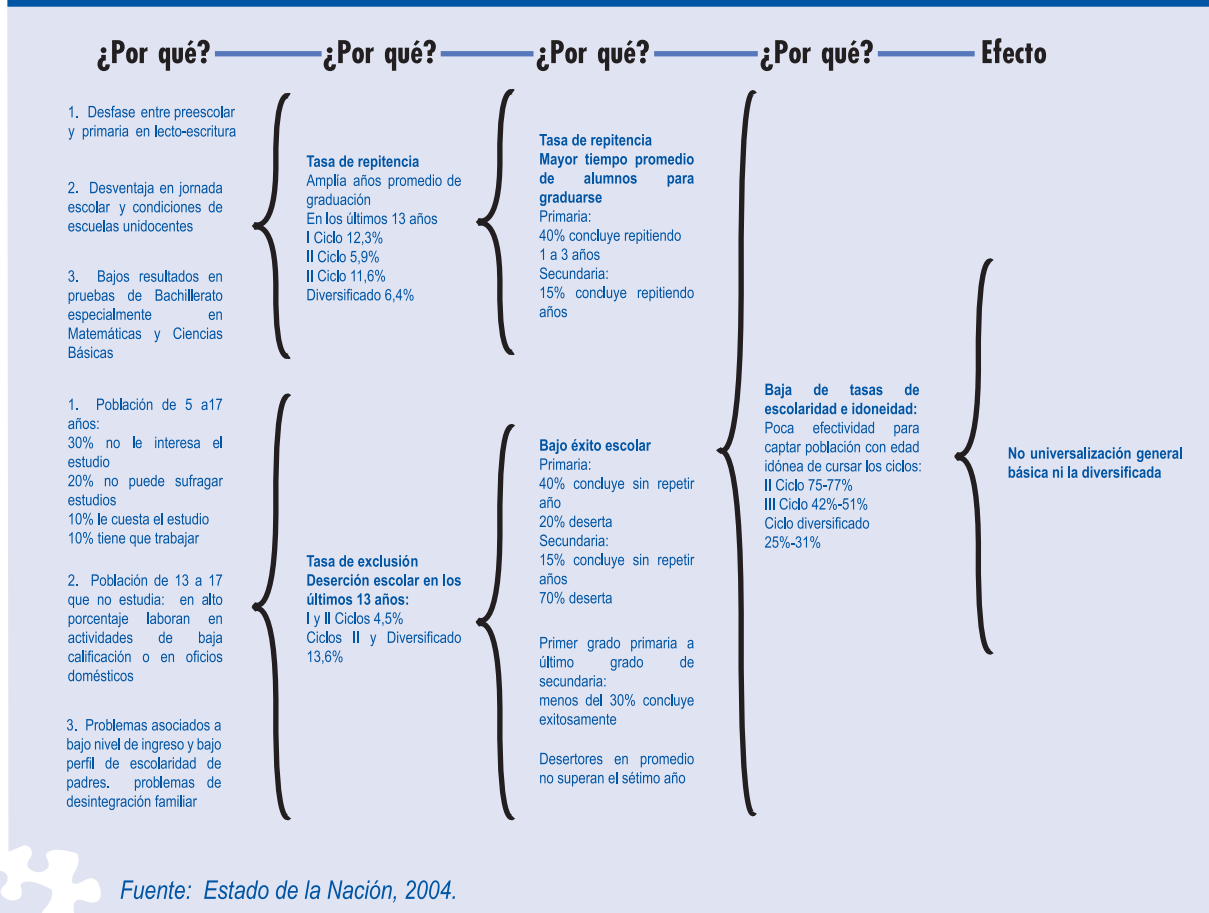 ¿Por qué? ¿Por qué? ¿Por qué? ¿Por qué? Efecto
1. Desfase entre preescolar
y primaria en lecto-escritura
2. Desventaja en jornada
escolar y condiciones de
escuelas unidocentes
3. Bajos resultados en
pruebas de Bachillerato
especialmente en
Matemáticas y Ciencias
Básicas
1. Población de 5 a17
años:
30% no le interesa el
estudio
20% no puede sufragar
estudios
10% le cuesta el estudio
10% tiene que trabajar
2. Población de 13 a 17
que no estudia: en alto
porcentaje laboran en
actividades de baja
calificación o en oficios
domésticos
3. Problemas asociados a
bajo nivel de ingreso y bajo
perfil de escolaridad de
padres. problemas de
desintegración familiar
Tasa de repitencia
Amplía años promedio de
graduación
En los últimos 13 años
I Ciclo 12,3%
II Ciclo 5,9%
II Ciclo 11,6%
Diversificado 6,4%
Tasa de exclusión
Deserción escolar en los
últimos 13 años:
I y II Ciclos 4,5%
Ciclos II y Diversificado
13,6%
Tasa de repitencia
Mayor tiempo promedio
de alumnos para
graduarse
Primaria:
40% concluye repitiendo
1 a 3 años
Secundaria:
15% concluye repitiendo
años
Bajo éxito escolar
Primaria:
40% concluye sin repetir
año
20% deserta
Secundaria:
15% concluye sin repetir
años
70% deserta
Primer grado primaria a
último grado de
secundaria:
menos del 30% concluye
exitosamente
Desertores en promedio
no superan el sétimo año
Baja de tasas de
escolaridad e idoneidad:
Poca efectividad para
captar población con edad
idónea de cursar los ciclos:
II Ciclo 75-77%
III Ciclo 42%-51%
Ciclo diversificado
25%-31%
No universalización general
básica ni la diversificada
Fuente: Estado de la Nación, 2004.